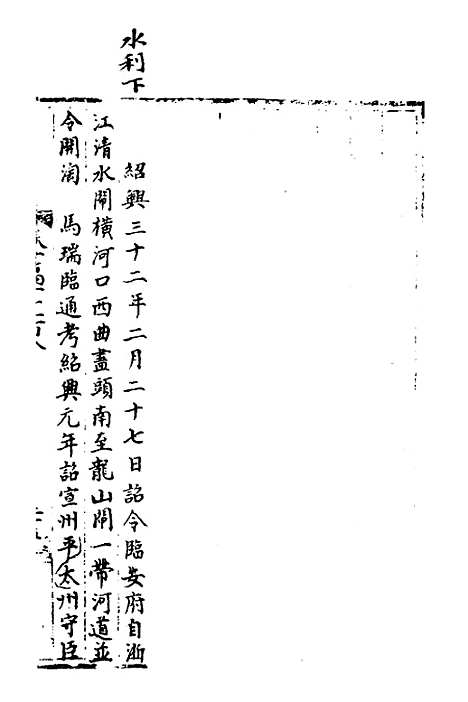 水利下
紹興三十二年二月二十七日詔令臨安府自浙
江清水閘橫河口西曲盡頭南至龍山閘一帶河道並
令開淘　馬瑞臨通考紹興元年詔宣州平太州守臣